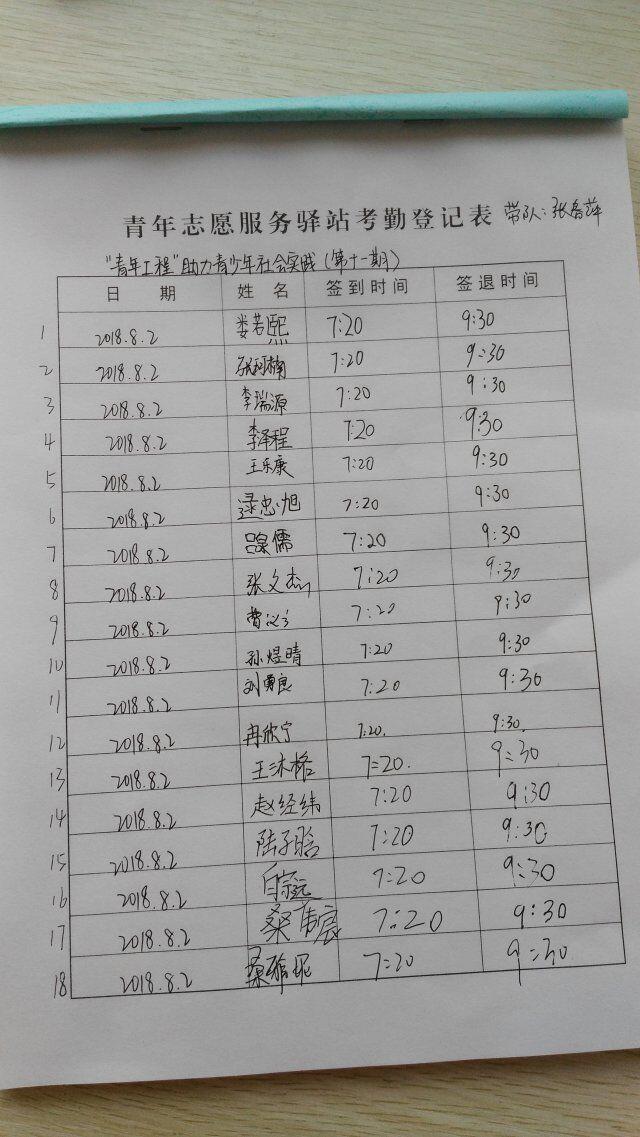 青年志愿服务驿站考勤登记表 带队:张春萍
"青年工程"助力青少年社会实践(第十一期)
日 期 姓 名 签到时间 签退时间
1 2018.8.2 娄若熙 7:20 9:30
2 2018.8.2 张珂楠 7:20 9:30
3 2018.8.2 李瑞源 7:20 9:30
4 2018.8.2 李泽程 7:20 9:30
5 2018.8.2 王乐康 7:20 9:30
6 2018.8.2 逯忠旭 7:20 9:30
7 2018.8.2 7:20 9:30
8 2018.8.2 张文杰 7:20 9:30
9 2018.8.2 7:20 9:30
10 2018.8.2 孙煜晴 7:20 9:30
11 2018.8.2 7:20 9:30
12 2018.8.2 冉欣宁 7:20. 9:30.
13 2018.8.2 王沐格 7:20. 9:30
14 2018.8.2 赵经纬 7:20 9:30
15 2018.8.2 陆子晗 7:20 9:30
16 2018.8.2 7:20 9:30
17 2018.8.2 7:20 9:30
18 2018.8.2 7:20 9:30